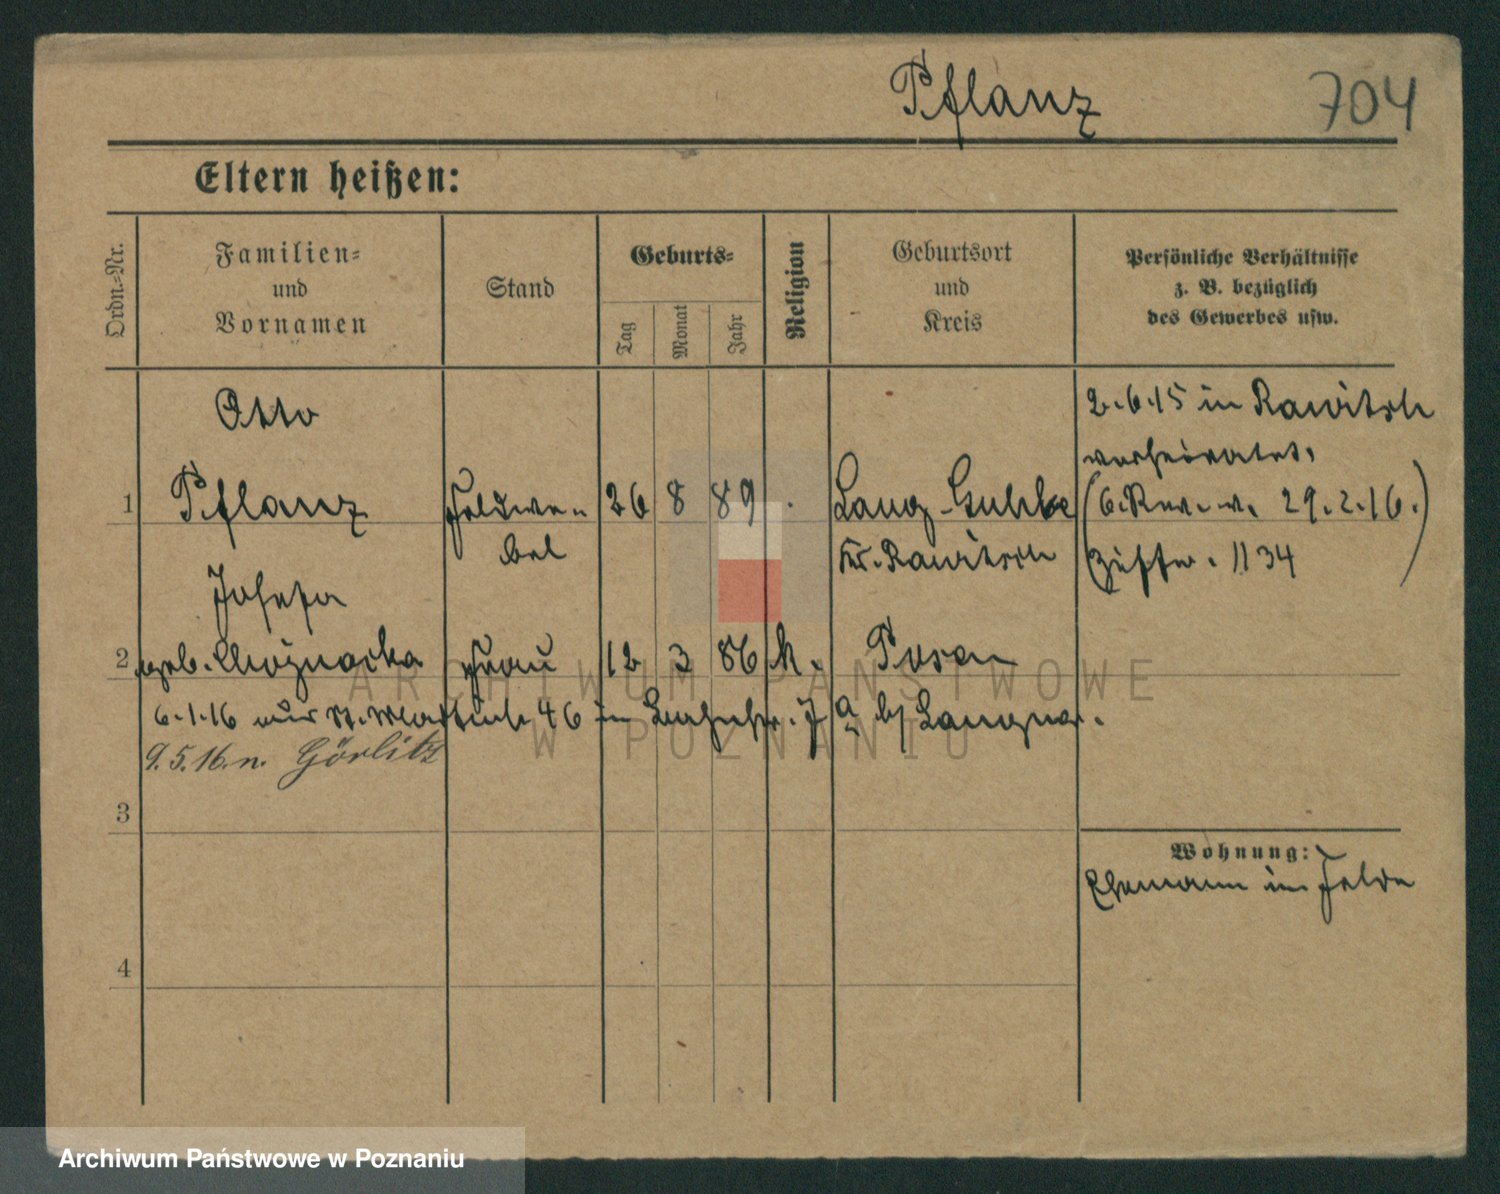 Pflanz 704
Eltern heißen:
Ordn.-Nr.
Familien-
und
Vornamen
Stand
Geburts-
Tag
Monat
Jahr
Religion
Geburtsort
und
Kreis
Persönliche Verhältnisse
z. B. bezüglich
des Gewerbes usw.
Otto
1 Pflanz Feldwe- 26 8 89 . Lang-Guhle
bel Kr. Rawitsch
2.6.15 in Rawitsch
verheiratet.
29.2.16.)
Ziffer. 1134
Josefa
2 geb. Frau 12 3 86 k. Posen
6.1.16 St. Martinstr. 46 in 7a b/
9.5.16. n. Görlitz
3
Wohnung:
Ehemann im Felde
4
ARCHIWUM PAŃSTWOWE
W POZNANIU
Archiwum Państwowe w Poznaniu